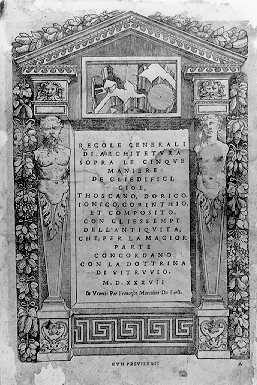 REGOLE GENERALI
DI ARCHITETVRA
SOPRA LE CINQVE
MANIERE
DE GLI EDIFICI,
CIOE,
THOSCANO, DORICO,
IONICO, CORINTHIO,
ET COMPOSITO,
CON GLI ESSEMPI
DELL'ANTIQVITA,
CHE, PER LA MAGIOR
PARTE
CONCORDANO
CON LA DOTTRINA
DI VITRVVIO.
M. D. XXXVII
In Venetia Per Francesco Marcolini Da Forlì.
CVM PRIVILEGII
A